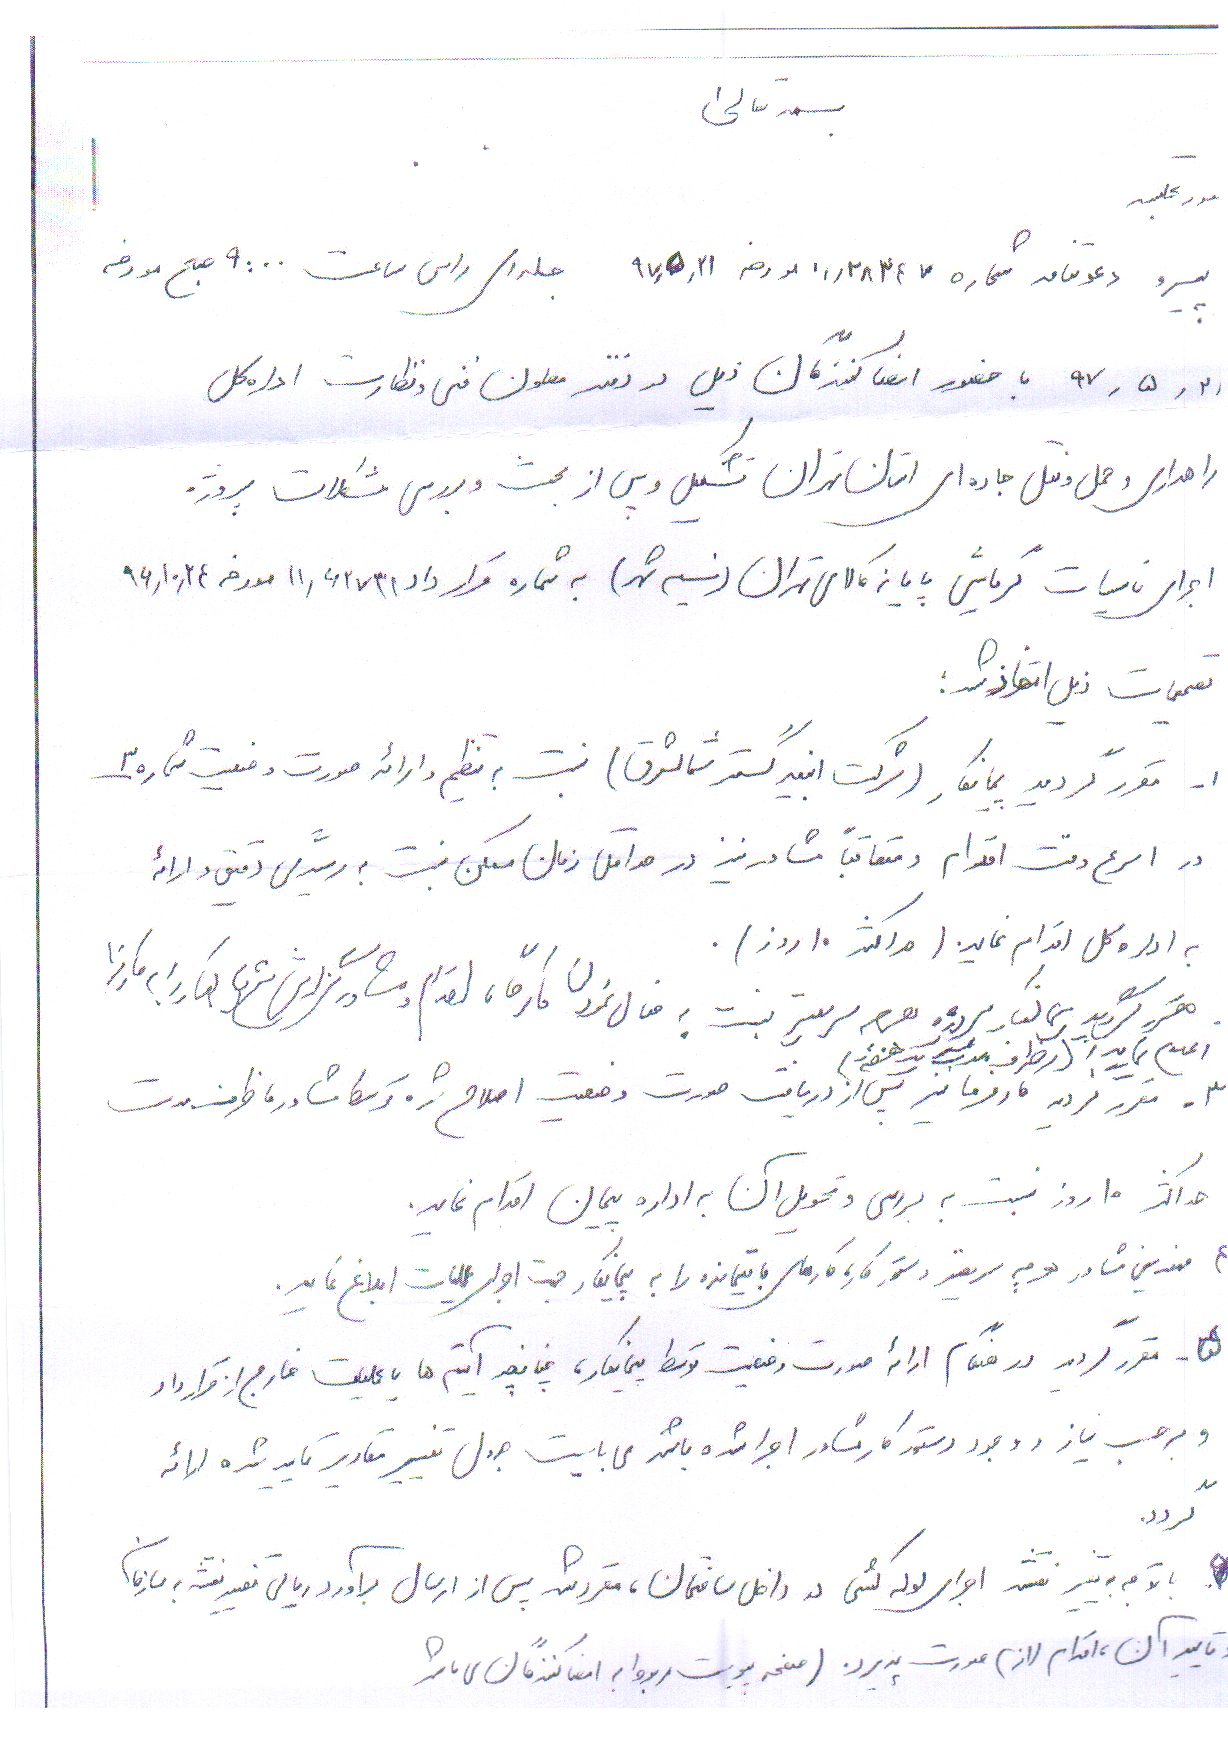 بسمه تعالی
صورتجلسه
پیرو دعوتنامه شماره ۱۱٫۳۸۳۴۷ مورخه ۹۷٫۵٫۲۱ جلسه‌ای راس ساعت ۹:۰۰ صبح مورخه
۹۷٫۵٫۲۱ با حضور امضا کنندگان ذیل در دفتر معاون فنی و نظارت اداره کل
راهداری و حمل و نقل جاده ای استان تهران تشکیل و پس از بحث و بررسی مشکلات پروژه
اجرای تاسیسات گرمایشی پایانه کالای تهران (نسیم شهر) به شماره قرارداد مورخه ۹۶٫۱۰٫۲۴
تصمیمات ذیل اتخاذ شد:
۱- مقرر گردید پیمانکار (شرکت ابنیه گستر شمالشرق) نسبت به تنظیم و ارائه صورت وضعیت شماره ۳
در اسرع وقت اقدام و متعاقباً مشاور نیز در حداقل زمان ممکن نسبت به رسیدگی دقیق و ارائه
به اداره کل اقدام نماید. (حداکثر ۱۰ روز).
مقرر گردید پیمانکار پروژه هرچه سریعتر نسبت به فعال نمودن کارگاه اقدام و مشاور گزارش شروع بکار را به کارفرما
اعلام نماید. (ظرف مدت یک هفته)
۳- مقرر گردید کارفرما نیز پس از دریافت صورت وضعیت اصلاح شده توسط مشاور ظرف مدت
حداکثر ۱۰ روز نسبت به بررسی و تحویل آن به اداره پیمان اقدام نماید.
۴ مهندسین مشاور هرچه سریعتر دستور کار کارهای باقیمانده را به پیمانکار جهت اجرای عملیات ابلاغ نماید.
۵- مقرر گردید در هنگام ارائه صورت وضعیت توسط پیمانکار، چنانچه آیتم ها یا عملیات خارج از قرارداد
و برحسب نیاز و وجود دستور کار مشاور اجرا شده باشد می بایست جدول تغییر مقادیر تایید شده ارائه
گردد.
۶- با توجه به تغییر نقشه اجرای لوله کشی در داخل ساختمان، مقرر شد پس از ارسال برآورد ریالی تغییر نقشه به سازمان
و تایید آن، اقدام لازم صورت پذیرد. (صفحه پیوست مربوط به امضا کنندگان می باشد